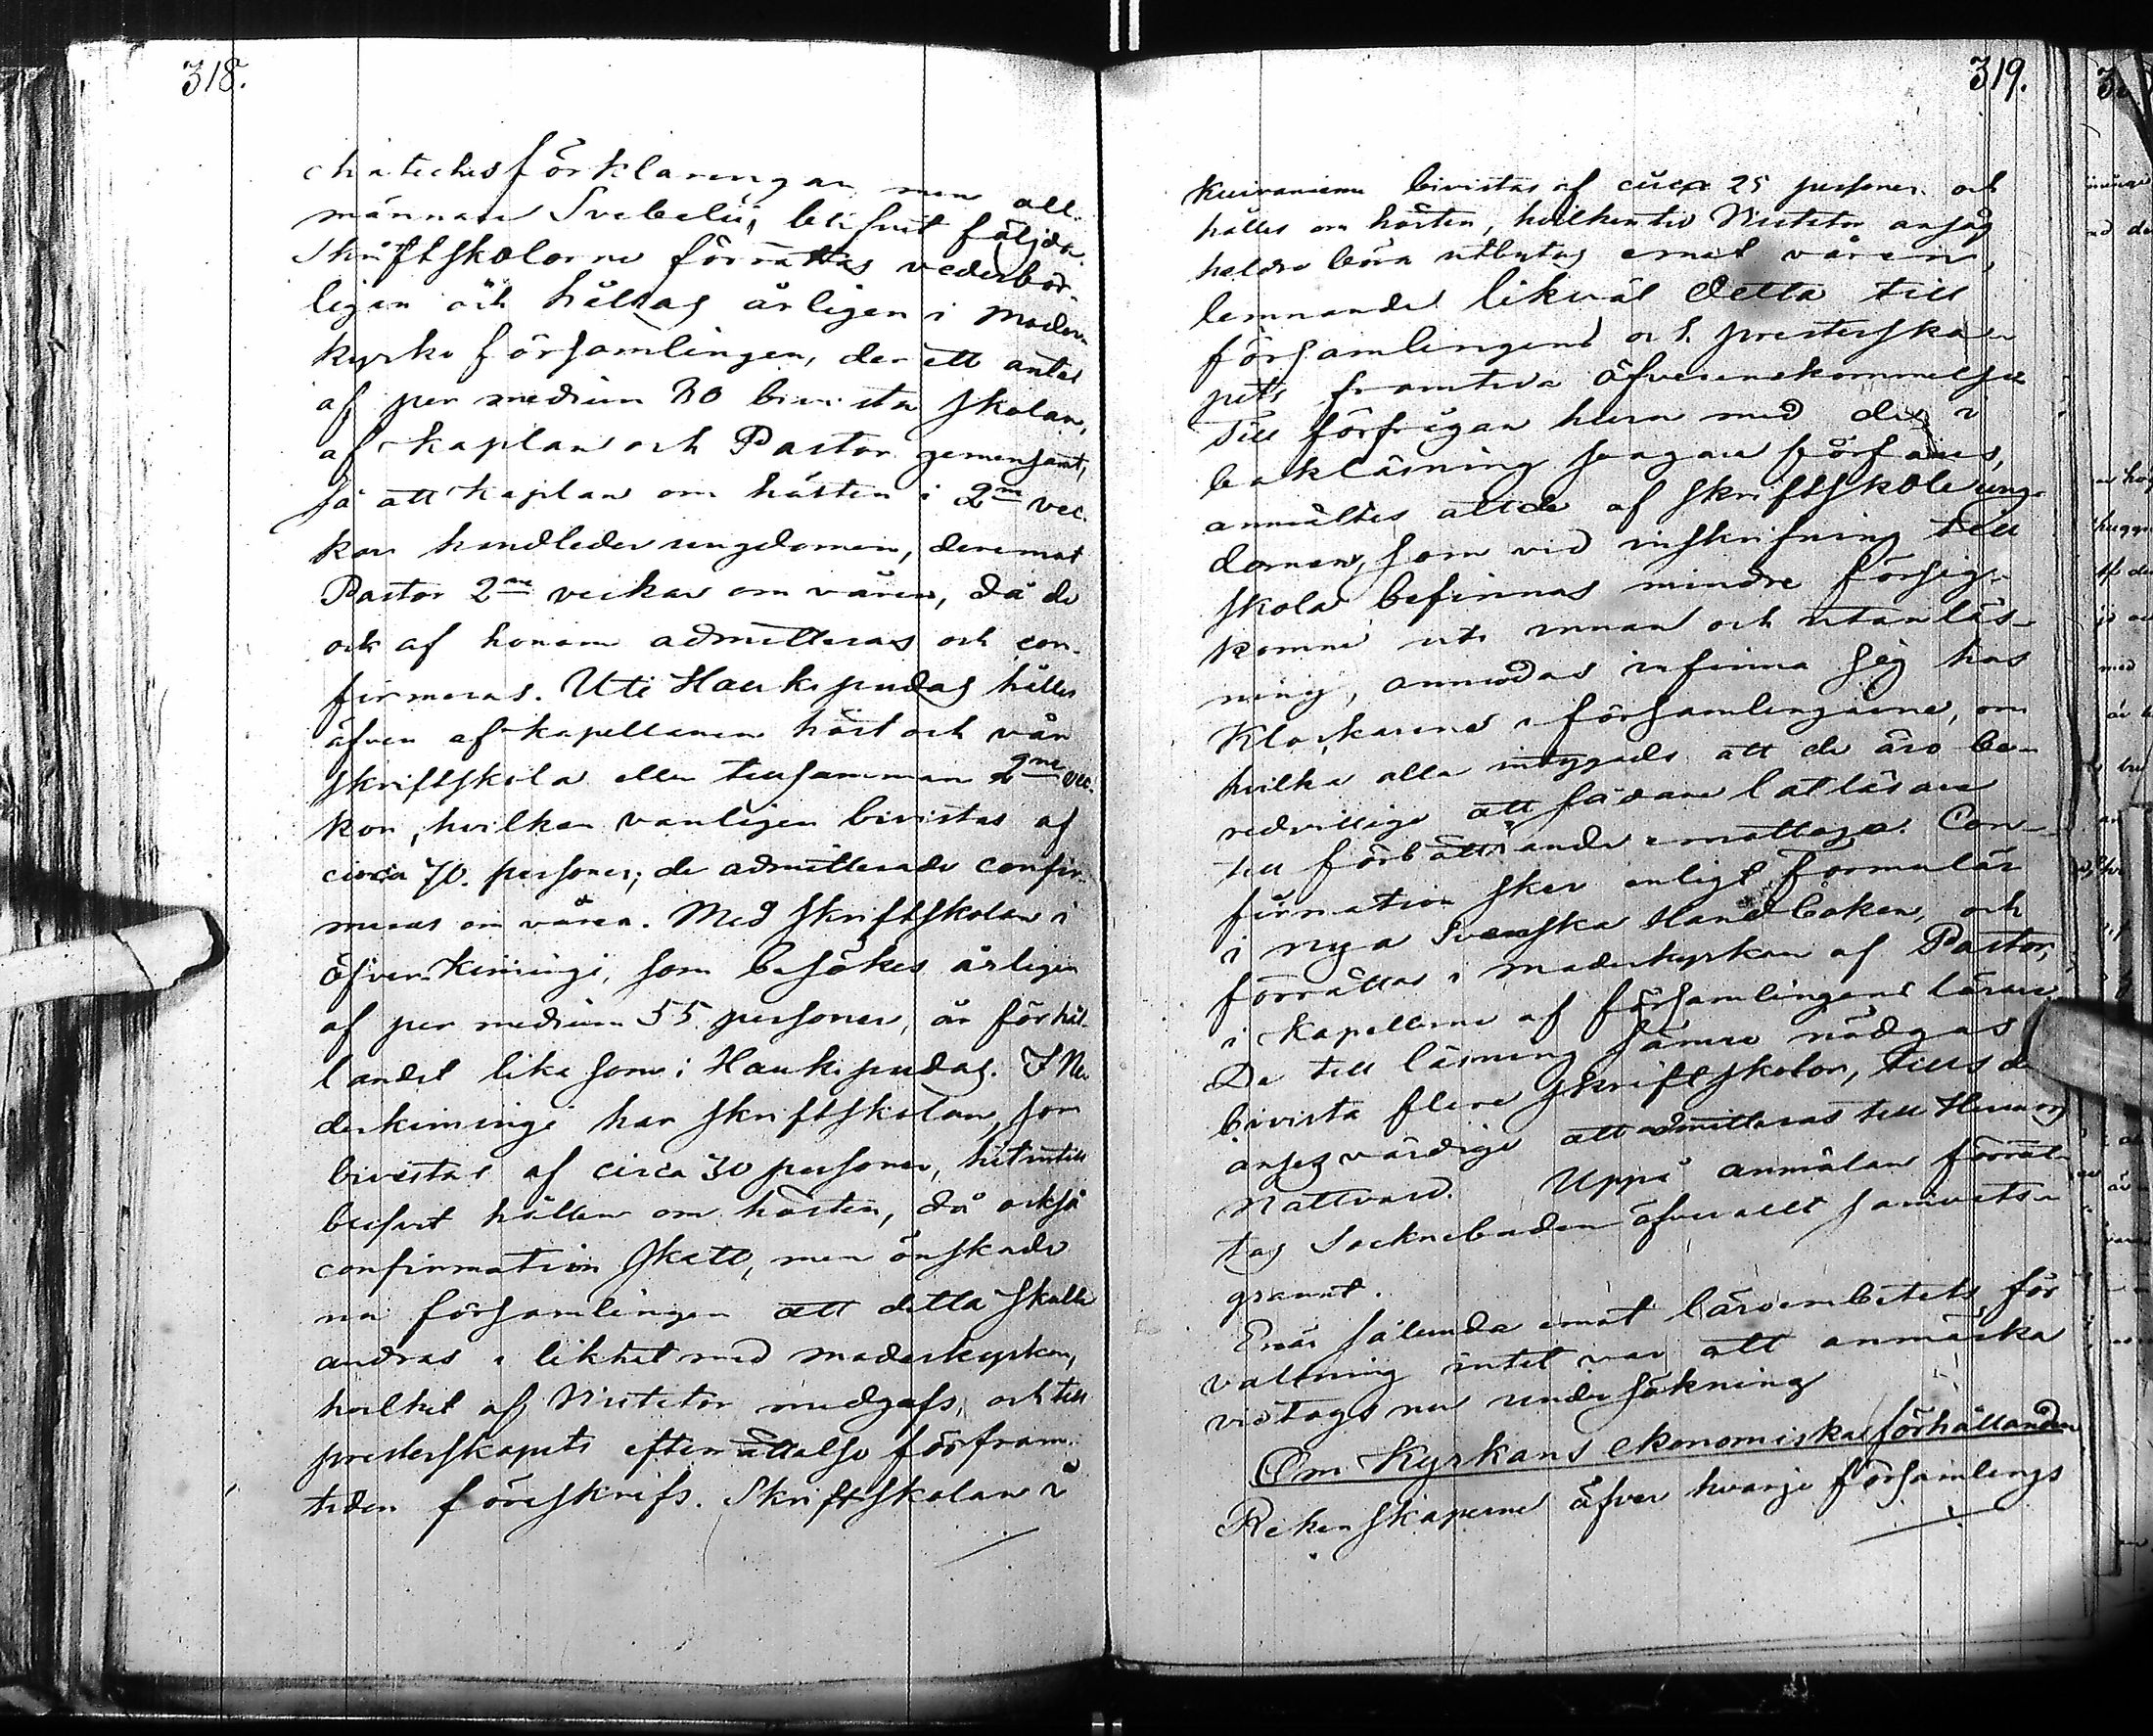 318.
chatechesförklaringar men all-
männare Svebelii, blifvit följda.
Skriftskolorne förrättas vederbör-
ligen och hållas årligen i moder
kyrko församlingen, der ett antal
af per medium 80 bivista skolan,
af kaplan och Pastor gemensamt,
så att kaplan om hösten i 2ne vec-
kor handleder ungdomen, deremot
Pastor 2ne veckor om våren, då de
ock af honom admitteras och con-
firmeras. Uti Haukipudas hålles
äfven af kapellanen höst och vår
skriftskola eller tillsamman 2ne vec-
kor, hvilken vanligen bivistas af
circa 70. personer; de admitterade confir-
meras om våren. Med skriftskolan i
öfver Kiminge, som besökes årligen
af per medium 55 personer, är förhål-
landet lika som i Haukipudas. I Ne-
derkiminge har skriftskolan, som
bivistas af circa 30 personer, hitintill
blifvit hållen om hösten, då också
confirmation skett, men önskade
nu församlingen att detta skulle
ändras i likhet med moderkyrkan,
hvilket af Visitator medgafs, och till
presterskapets efterrättelse för fram-
tiden föreskrifs. Skriftskolan i
319.
Kuivaniemi bivistas af circa 25 personer och
hålles om hösten, hvilken tid Visitator ansåg
heldre böra utbytas emot våren,
lemnande likväl detta till
församlingens och presterska-
pets framtida öfverenskommelse
Till förfrågan huru med de i
boklåsning svagare förfares,
anmältes att de af skriftskole ung-
domen, som vid inskrifning till
skolan befinnas mindre försig-
komne uti innan och utanläs-
ning, anmodas infinna sig hos
Klockarene i församlingarne, om
hvilka alla intygades att de äro be-
redvillige att sådane latläsare
till förbättrande emottaga. Con-
firmation sker enligt formulär
i nya Svenska Handboken, och
förrättas i moderkyrkan af Pastor,
i Kapellerne af församlingens lärare.
De till läsning sämre nödgas
bivista flere skriftskolor, tills de
anses värdige att admitteras till Herrans
nattvard. Uppå anmälan förrät-
tas Socknebuden öfverallt samvets-
grannt.
Enär sålunda emot läroembetets för
valtning intet var att anmärka
vidtogs nu undersökning
Om Kyrkans ekonomiska förhållanden
Räkenskaperne öfver hvarje församlings